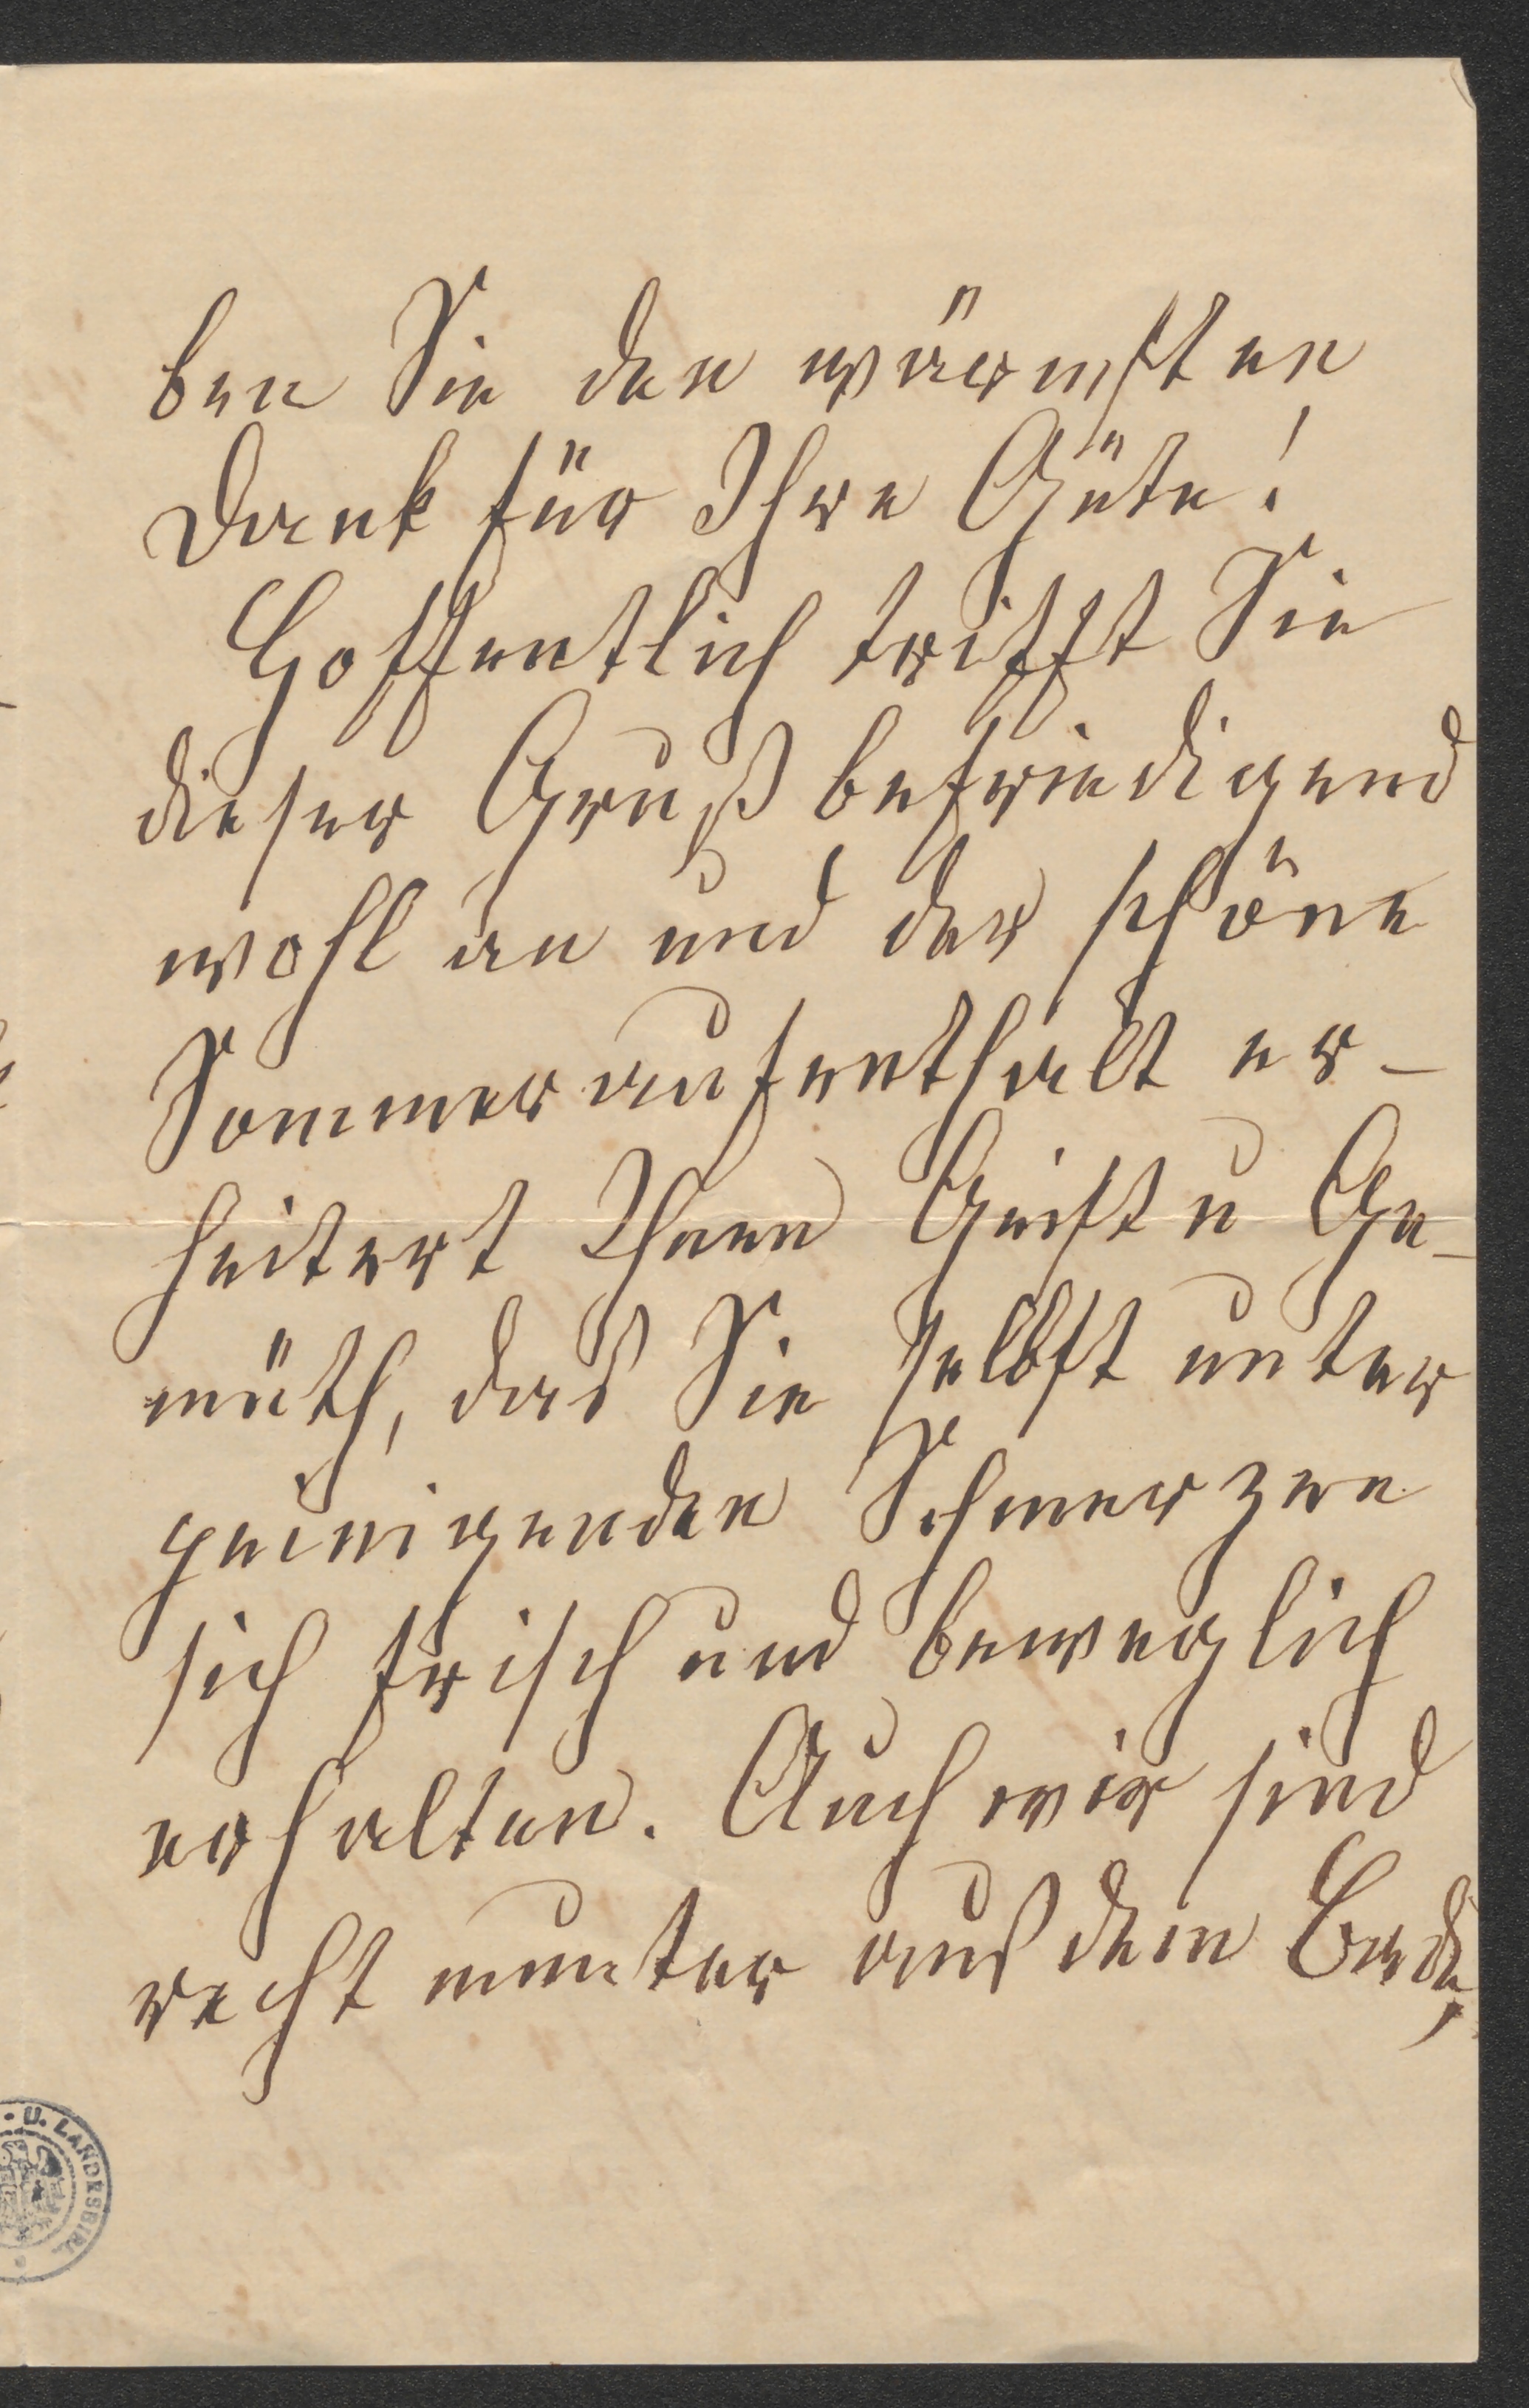 ben Sie den wärmsten
Dank für Ihre Güte!
Hoffentlich trifft Sie
dieser Gruß befriedigend
wohl an und der schöne
Sommeraufenthalt er-
heitert Ihnen Geist u Ge-
müth, das Sie selbst unter
peinigenden Schmerzen
sich frisch und beweglich
erhalten. Auch wir sind
recht munter aus dem Bade,
U. LANDESBIBL